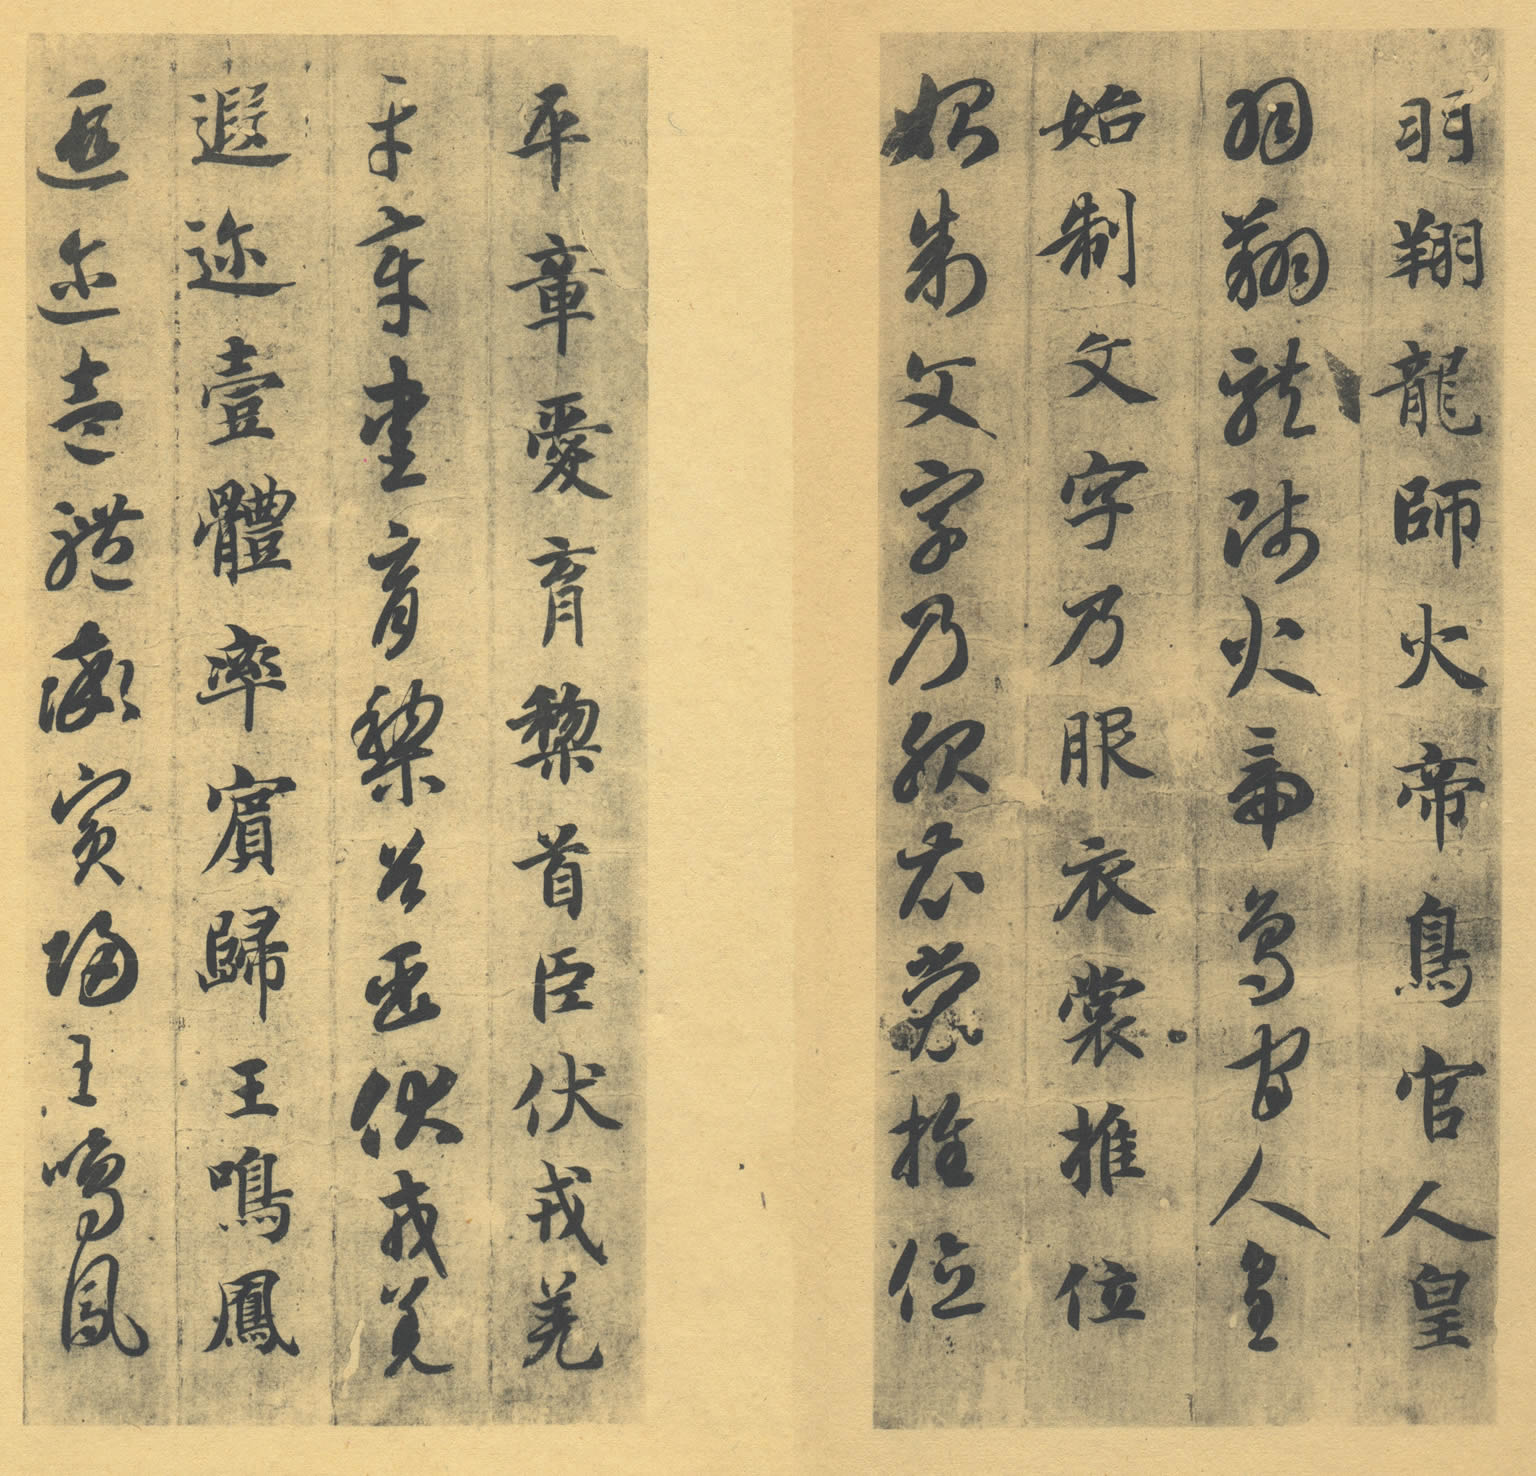 羽翔龍師火帝鳥官人皇
羽翔龍師火帝鳥官人皇
始制文字乃服衣裳推位
始制文字乃服衣裳推位
平章愛育黎首臣伏戎羌
平章愛育黎首臣伏戎羌
遐迩壹體率賓歸王鳴鳳
遐迩壹體率賓歸王鳴鳳